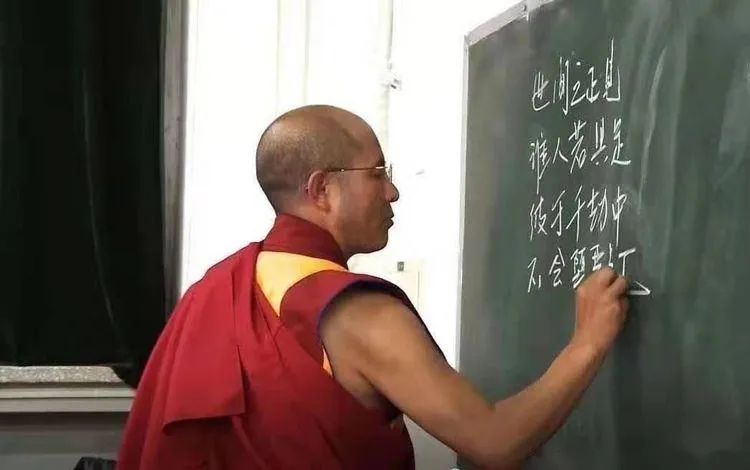 世间之正见
谁人若具足
彼于千劫中
不会堕